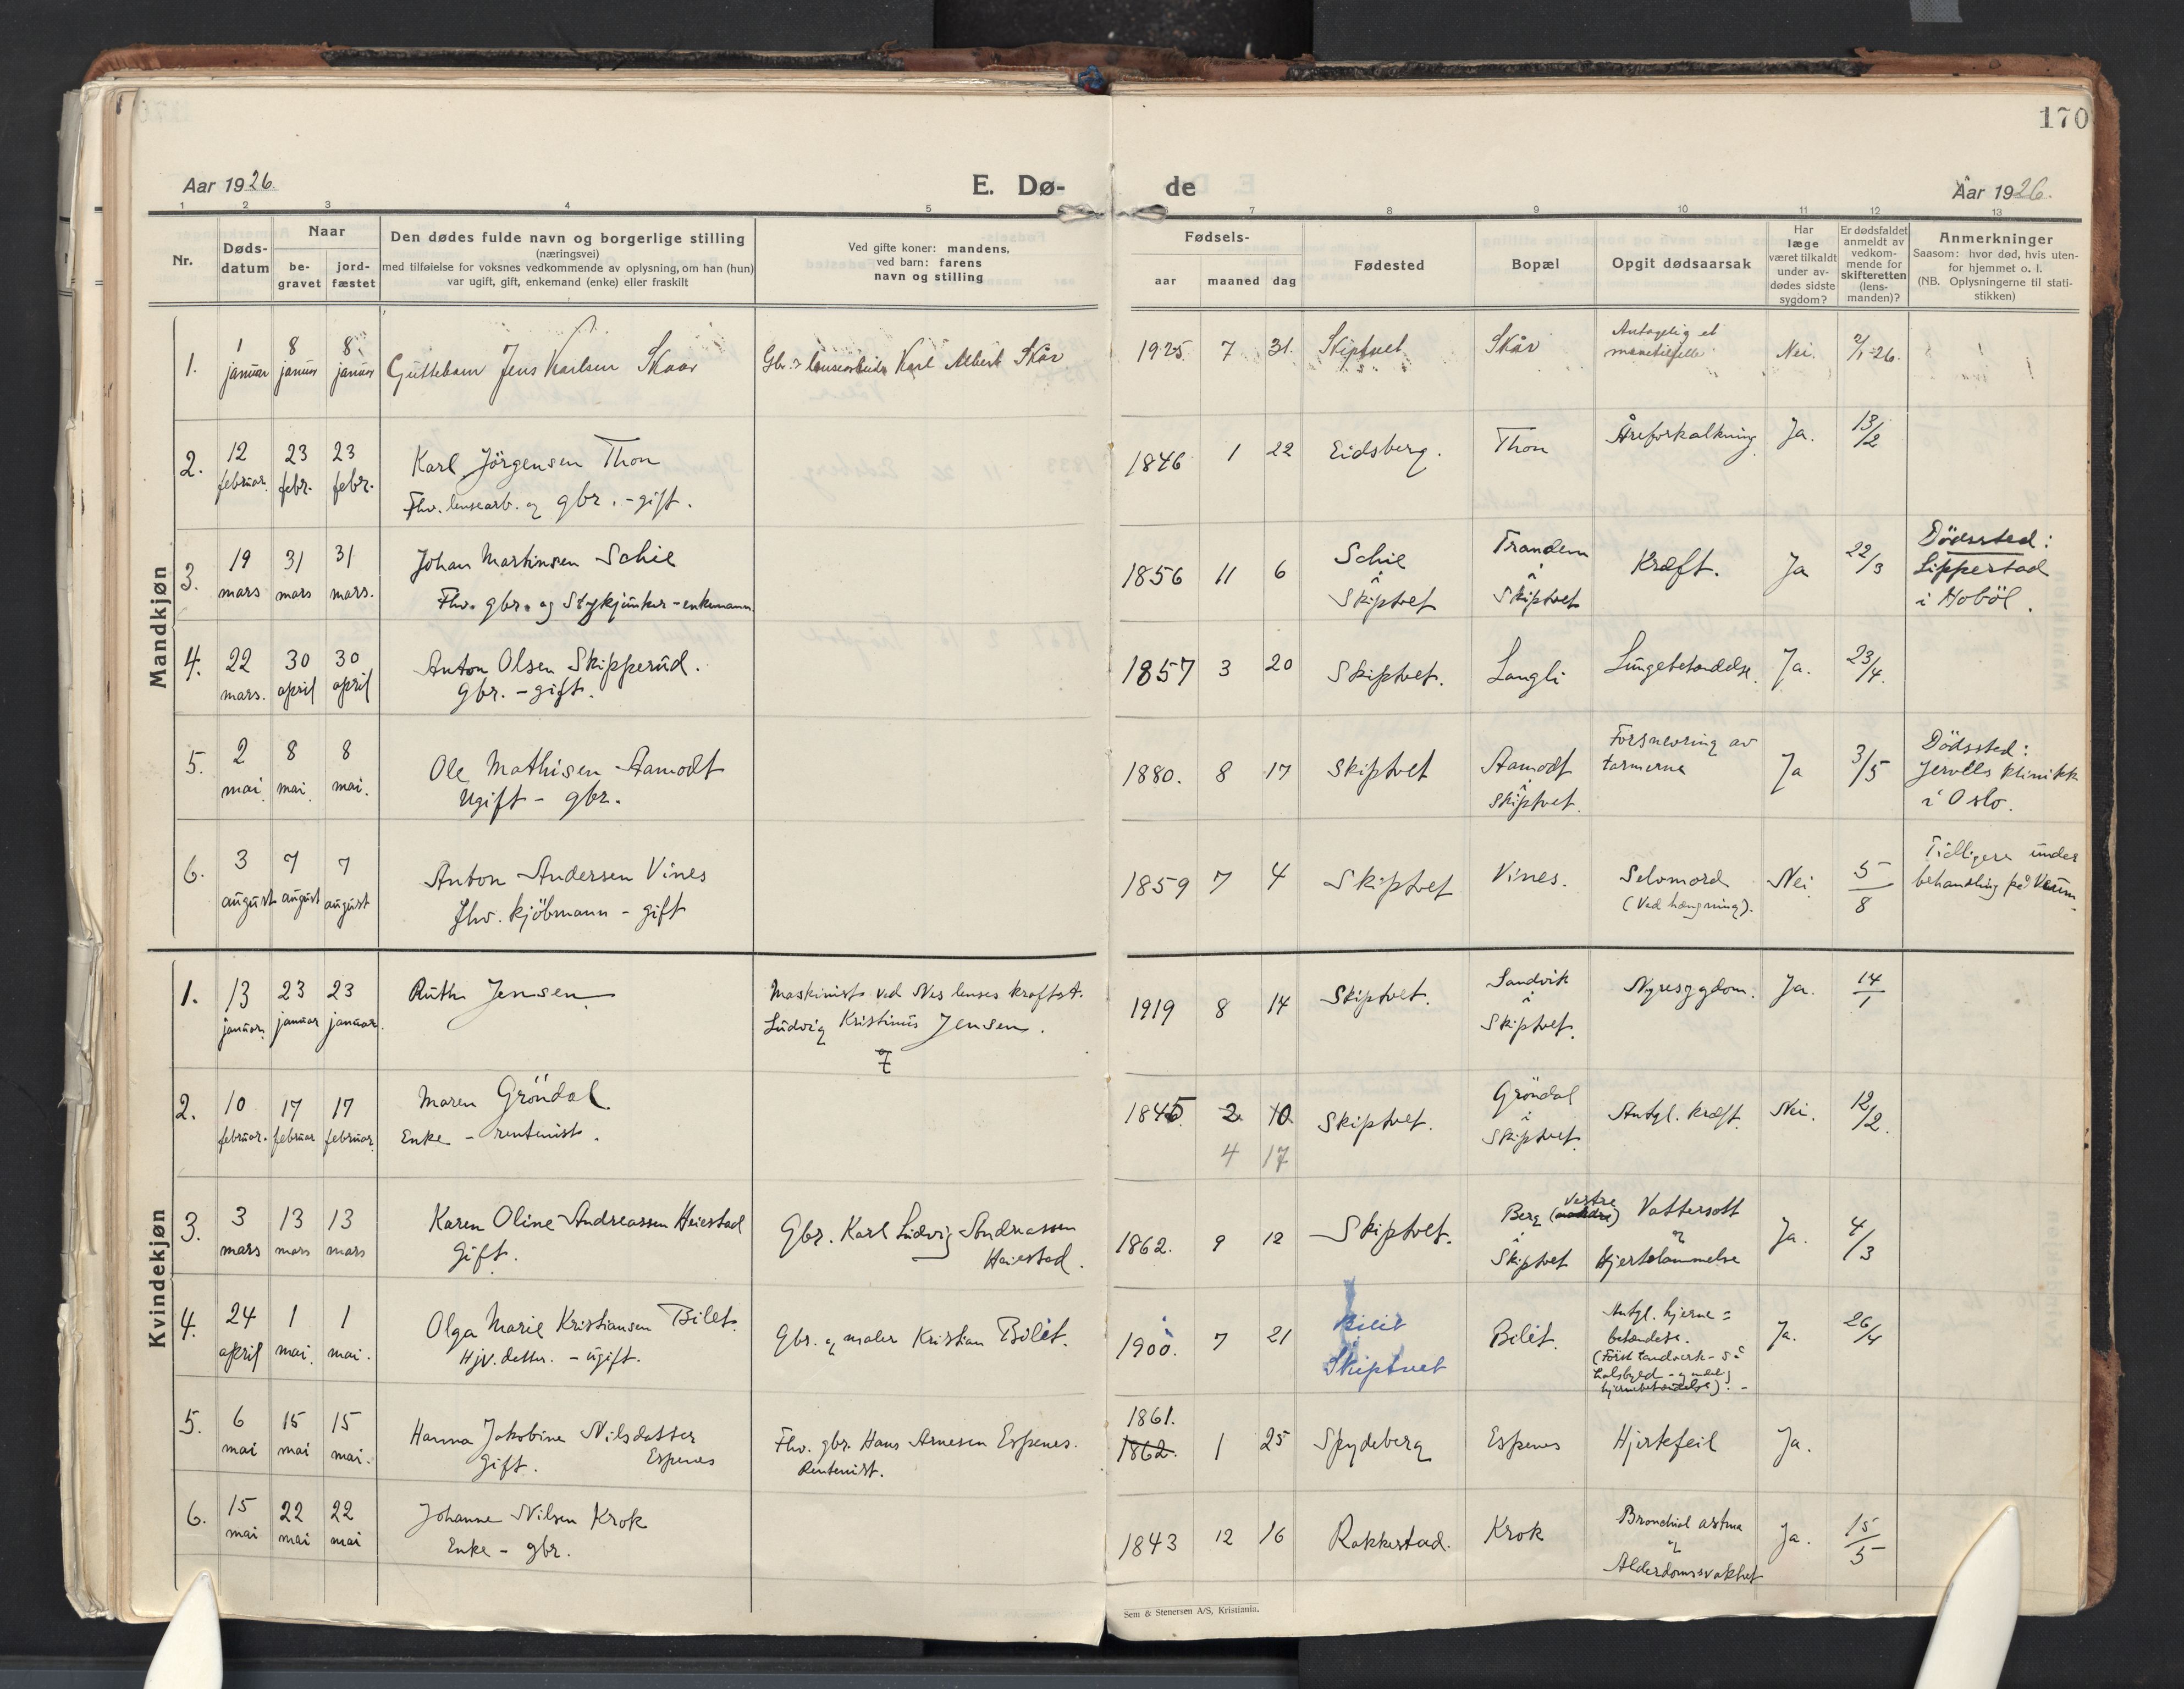 170
Aar 1926.
E. Dø-
de
Aar 1926.
1 2 3 4 5 7 8 9 10 11 12 13
Nr.
Døds-
datum
Naar
be-
gravet
jord-
fæstet
Den dødes fulde navn og borgerlige stilling
(næringsvei)
med tilføielse for voksnes vedkommende av oplysning, om han (hun)
var ugift, gift, enkemand (enke) eller fraskilt
Ved gifte koner: mandens,
ved barn: farens
navn og stilling
Fødsels-
aar maaned dag
Fødested
Bopæl
Opgit dødsaarsak
Har
læge
været tilkaldt
under av-
dødes sidste
sygdom?
Er dødsfaldet
anmeldt av
vedkom-
mende for
skifteretten
(lens-
manden)?
Anmerkninger
Saasom: hvor død, hvis uten-
for hjemmet o. l.
(NB. Oplysningerne til stati-
stikken)
Mandkjøn
1. 1 januar 8 januar 8 januar
Guttebarn Jens Karlsen Skaar
Gbr. & lensearbeider Karl Albert Skår
1925. 7 31. Skiptvet Skår
Antagelig et
Nei. 2/1-26.
2. 12 februar. 23 febr. 23 febr.
Karl Jörgensen Thon
Fhv. lensearb. og gbr. - gift.
1846 1 22 Eidsberg. Thon Åreforkalkning Ja. 13/2
3. 19 mars 31 mars 31 mars.
Johan Martinsen Schie
Fhv. gbr. og Stykjunker - enkemann.
1856 11 6 Schie
i
Skiptvet
Trandem
i
Skiptvet
Kræft. Ja 22/3
Dödssted:
Lippestad
i Hoböl.
4. 22 mars. 30 april 30 april
Anton Olsen Skipperud.
Gbr. - gift.
1857 3 20 Skiptvet. Langli Lungebetændelse. Ja. 23/4.
5. 2 mai. 8 mai. 8 mai.
Ole Mathisen Aamodt
Ugift - gbr.
1880. 8 17 Skiptvet
Aamodt
i
Skiptvet.
Forsnevring av
tarmerne
Ja 3/5
Dödssted:
Jervells klinikk
i Oslo.
6. 3 august 7 august 7 august
Anton Andersen Vines
fhv. kjöbmann - gift
1859 7 4 Skiptvet Vines.
Selvmord
(Ved hængning).
Nei. 5/8
Tidligere under
behandling på Veum.
Kvindekjøn
1. 13 januar. 23 januar 23 januar.
Ruth Jensen
Maskinist ved Nes lenses kraftst.
Ludvig Kristinus Jensen.
1919 8 14 Skiptvet.
Sandvik
i
Skiptvet.
Nyresygdom. Ja. 14/1
2. 10 februar. 17 februar 17 februar.
Maren Gröndal.
Enke - rentenist.
1845. 2 10
4 17
Skiptvet.
Gröndal
i
Skiptvet.
Antgl. kræft. Nei. 12/2.
3. 3 mars 13 mars 13 mars
Karen Oline Andreassen Heiestad
Gift.
Gbr. Karl Ludvig Andreassen
Heiestad.
1862. 9 12 Skiptvet.
vestre
Berg (nordre)
i
Skiptvet
Vattersott
og
Hjertelammelse
Ja. 4/3
4. 24 april 1 mai. 1 mai.
Olga Marie Kristiansen Bilet.
Hjv. datter. - ugift.
Gbr. og maler Kristian Bilet.
1900. 7 21
Bilit
Skiptvet
Bilet.
Antgl. hjerne=
betændelse.
(Först tandverk - så
halsbyld - og endelig
hjernebetændelse). -
Ja. 26/4
5. 6 mai 15 mai 15 mai.
Hanna Jakobine Nilsdatter
Gift. Espenes
Fhv. gbr. Hans Arnesen Espenes.
Rentenist.
1861.
1862. 1 25 Spydeberg Espenes Hjertefeil Ja.
6. 15 mai 22 mai 22 mai
Johanne Nilsen Krok
Enke - gbr.
1843 12 16 Rakkestad. Krok
Bronchial astma
og
Alderdomssvakhet
Ja. 15/5
Sem & Stenersen A/S, Kristiania.